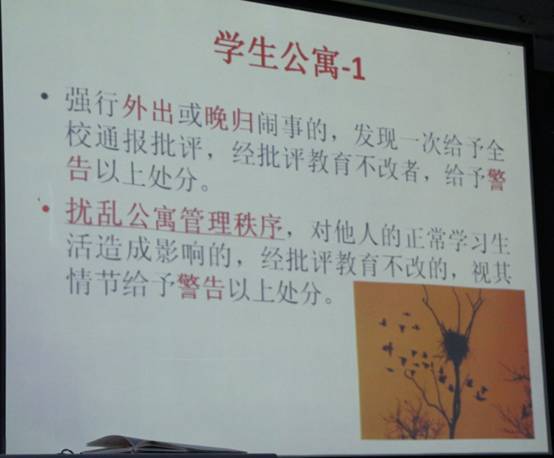 学生公寓-1
• 强行外出或晚归闹事的，发现一次给予全
校通报批评，经批评教育不改者，给予警
告以上处分。
• 扰乱公寓管理秩序，对他人的正常学习生
活造成影响的，经批评教育不改的，视其
情节给予警告以上处分。